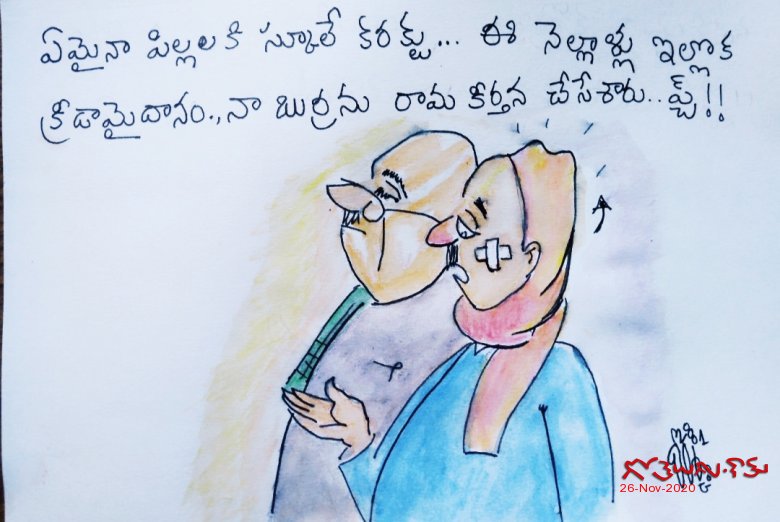 ఏమైనా పిల్లలకి స్కూలే కరక్టు... ఈ నెల్లాళ్లు ఇల్లొక
క్రీడామైదానం., నా బుర్రను రామ కీర్తన చేసేశారు.. ప్చ్!!
గోతెలుగు.కామ్
26-Nov-2020